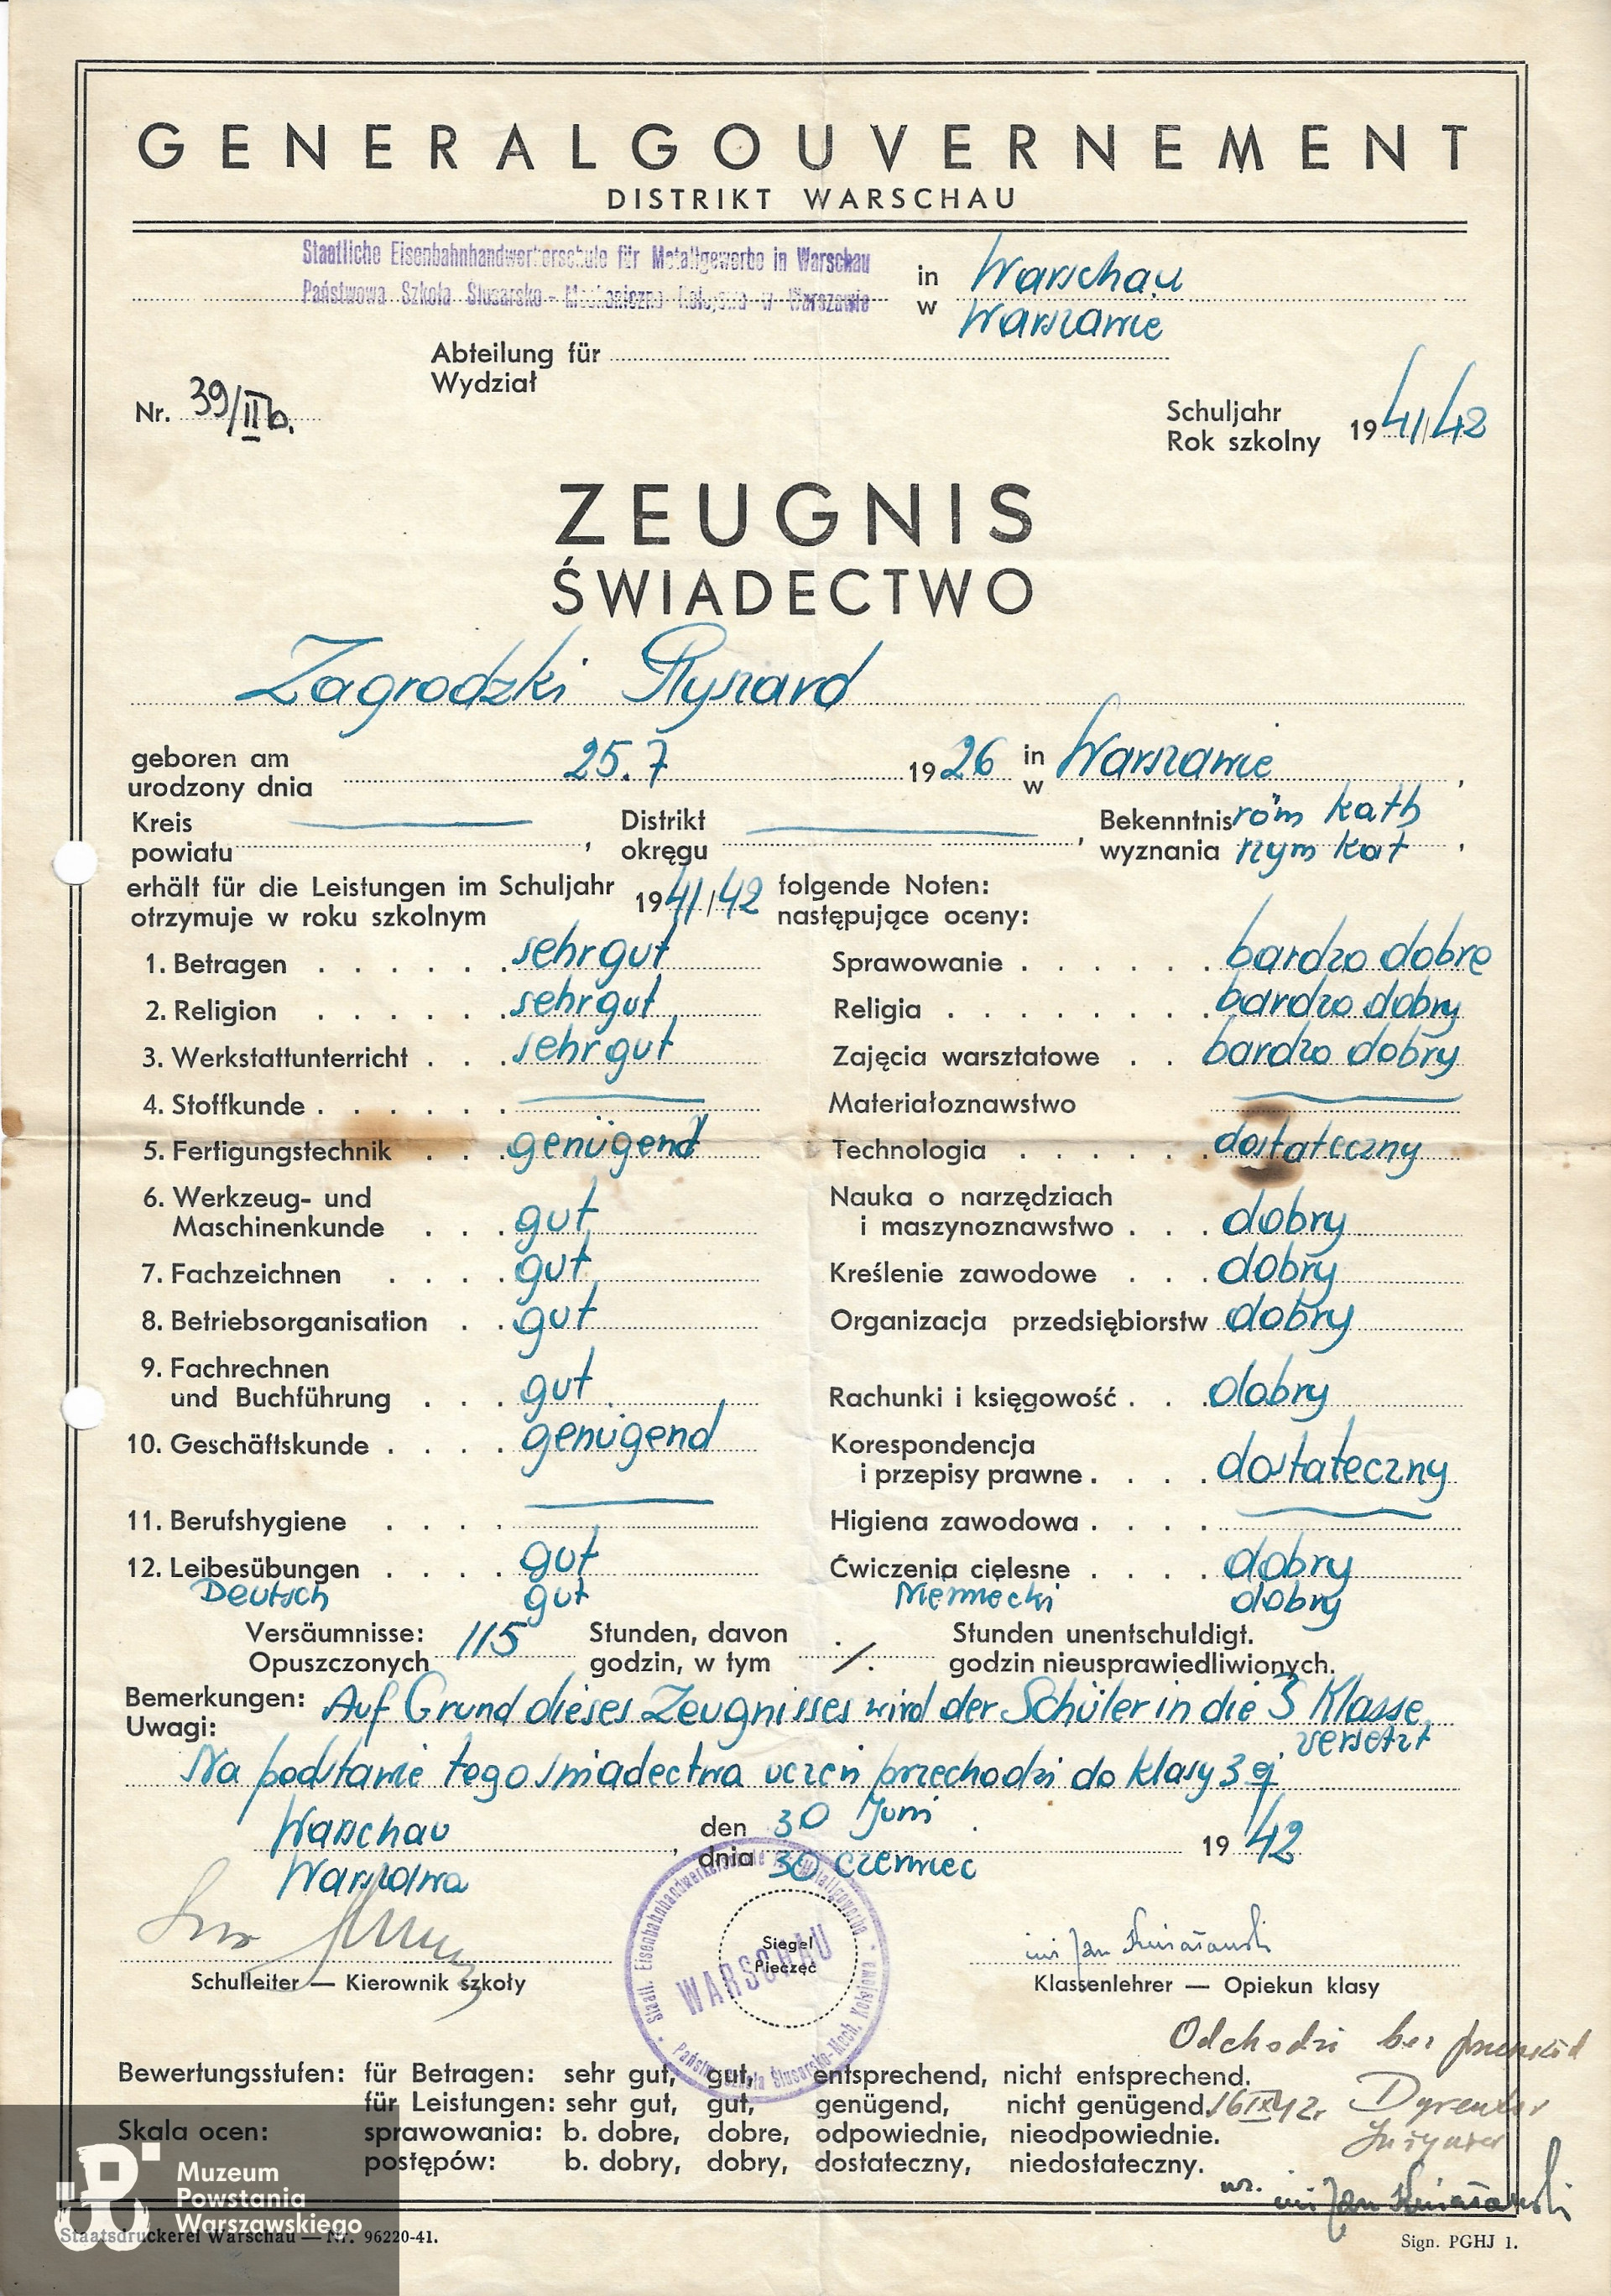 GENERALGOUVERNEMENT
DISTRIKT WARSCHAU
Staatliche Eisenbahnhandwerkerschule für Metallgewerbe in Warschau
Państwowa Szkoła Ślusarsko-Mechaniczna Kolejowa w Warszawie
in Warschau
w Warszawie
Abteilung für
Wydział
Nr. 39/IIb.
Schuljahr
Rok szkolny 1941/42
ZEUGNIS
ŚWIADECTWO
Zagrodzki Ryszard
geboren am
urodzony dnia 25.7 1926 in
w Warszawie,
Kreis
powiatu , Distrikt
okręgu , Bekenntnis röm kath
wyznania rzym kat ,
erhält für die Leistungen im Schuljahr 1941/42 folgende Noten:
otrzymuje w roku szkolnym następujące oceny:
1. Betragen . . . . . . sehr gut Sprawowanie . . . . . . bardzo dobre
2. Religion . . . . . . sehr gut Religia . . . . . . . . bardzo dobry
3. Werkstattunterricht . . . sehr gut Zajęcia warsztatowe . . bardzo dobry
4. Stoffkunde . . . . . . Materiałoznawstwo
5. Fertigungstechnik . . . genügend Technologia . . . . . . dostateczny
6. Werkzeug- und Nauka o narzędziach
Maschinenkunde . . . gut i maszynoznawstwo . . . dobry
7. Fachzeichnen . . . . gut Kreślenie zawodowe . . . dobry
8. Betriebsorganisation . . gut Organizacja przedsiębiorstw dobry
9. Fachrechnen
und Buchführung . . . gut Rachunki i księgowość . . . dobry
10. Geschäftskunde . . . . genügend Korespondencja
i przepisy prawne . . . . dostateczny
11. Berufshygiene . . . . Higiena zawodowa . . . .
12. Leibesübungen . . . . gut Ćwiczenia cielesne . . . . dobry
Deutsch gut Niemiecki dobry
Versäumnisse: 115 Stunden, davon ./. Stunden unentschuldigt.
Opuszczonych godzin, w tym godzin nieusprawiedliwionych.
Bemerkungen: Auf Grund dieses Zeugnisses wird der Schüler in die 3 Klasse
Uwagi: versetzt
Na podstawie tego świadectwa uczeń przechodzi do klasy 3 ej.
Warschau, den 30 Juni 1942
Warszawa dnia 30 czerwiec
Staatl. Eisenbahnhandwerkerschule für Metallgewerbe
WARSCHAU
Państw. Szkoła Ślusarsko-Mech. Kolejowa
Siegel
Pieczęć
inż Jan
Schulleiter — Kierownik szkoły Klassenlehrer — Opiekun klasy
Odchodzi bez
Bewertungsstufen: für Betragen: sehr gut, gut, entsprechend, nicht entsprechend.
für Leistungen: sehr gut, gut, genügend, nicht genügend. 16 IX 42 r. Dyrektor
Skala ocen: sprawowania: b. dobre, dobre, odpowiednie, nieodpowiednie.
postępów: b. dobry, dobry, dostateczny, niedostateczny.
wz. inż Jan
Muzeum
Powstania
Warszawskiego
Staatsdruckerei Warschau — Nr. 96220-41. Sign. PGHJ 1.